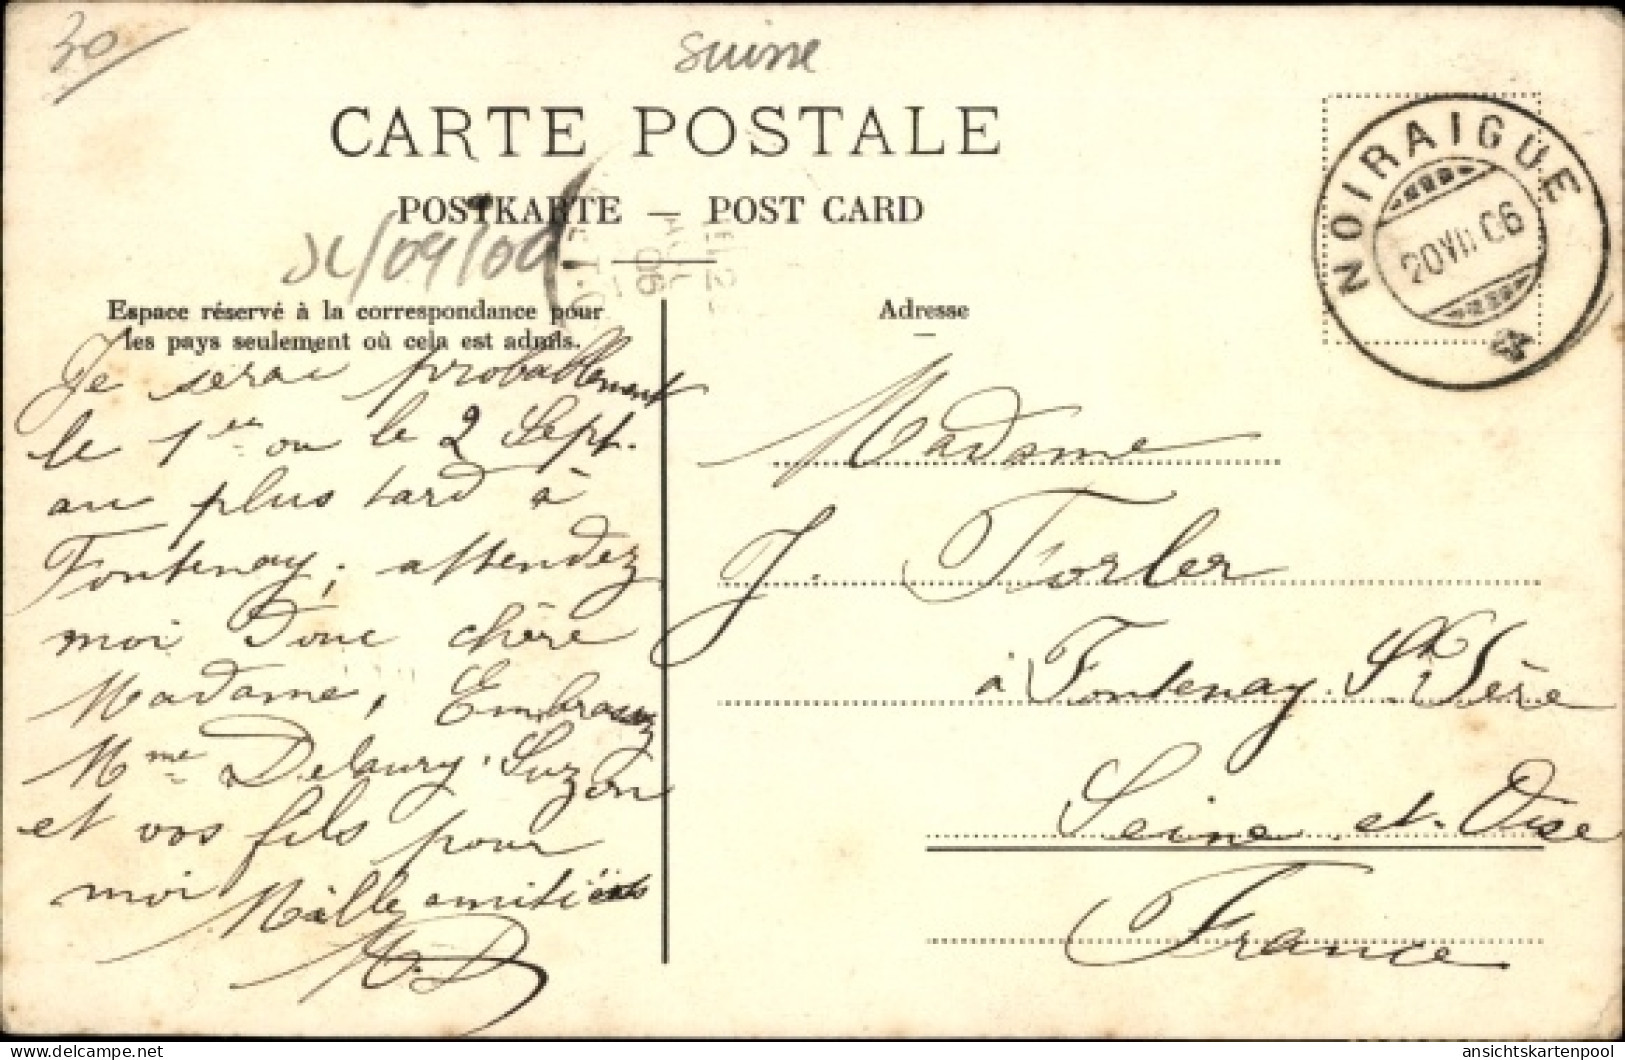 30
Suisse
CARTE POSTALE
POSTKARTE — POST CARD
NOIRAIGUE
20 VIII 06
Espace réservé à la correspondance pour
les pays seulement où cela est admis.
Adresse
Je serai probablement
le 1er ou le 2 Sept.
au plus tard à
Fontenay, attendez
moi donc chère
Madame, Embrassez
Mme Delaury, Suzon
et vos fils pour
moi Mille amitiés
M. D
Madame
J. Forler
à Fontenay Ss Père
Seine et Oise
France
delcampe.net
ansichtskartenpool